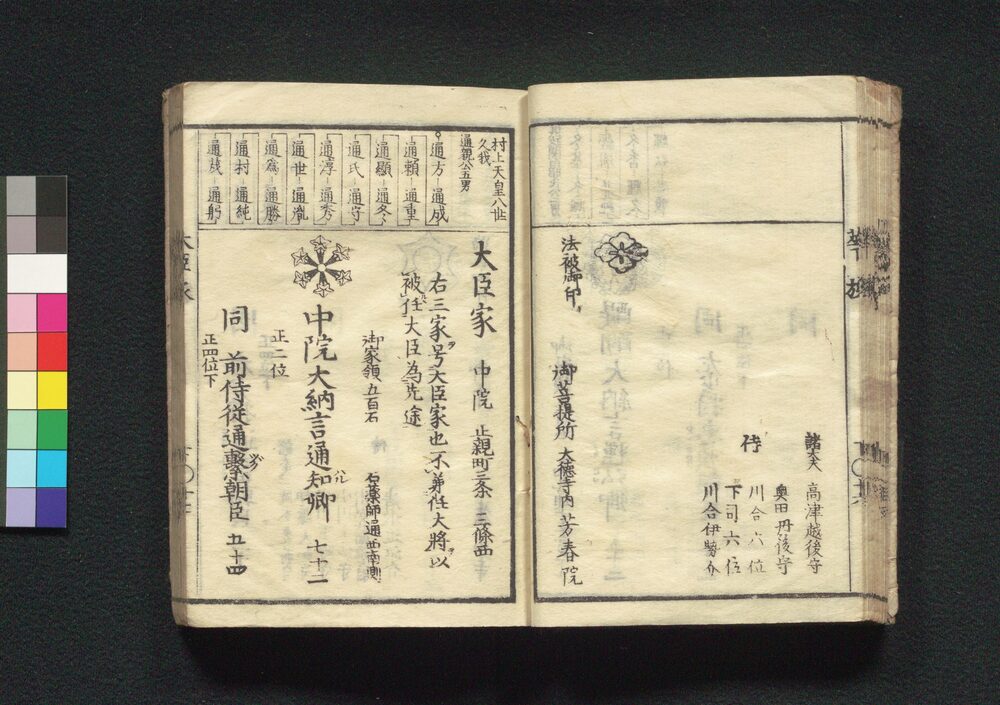 諸大夫 高津越後守
奥田丹後守
侍 川合六位
下司六位
川合伊勢介
法被御印
御菩提所 大徳寺内 芳春院
村上天皇八世
久我
通親公五男
通方 通成
通頼 通重
通顕 通冬
通氏 通守
通淳 通秀
通世 通胤
通為 通勝
通村 通純
通茂 通躬
大臣家 中院 正親町三条 三條西
右三家号大臣家也不兼任大将以
被任大臣為先途
御家領五百石 石薬師通西南側
中院大納言通知卿 七十二
ハル
正二位
同 前侍従通繋朝臣 五十四
正四位下
大臣家